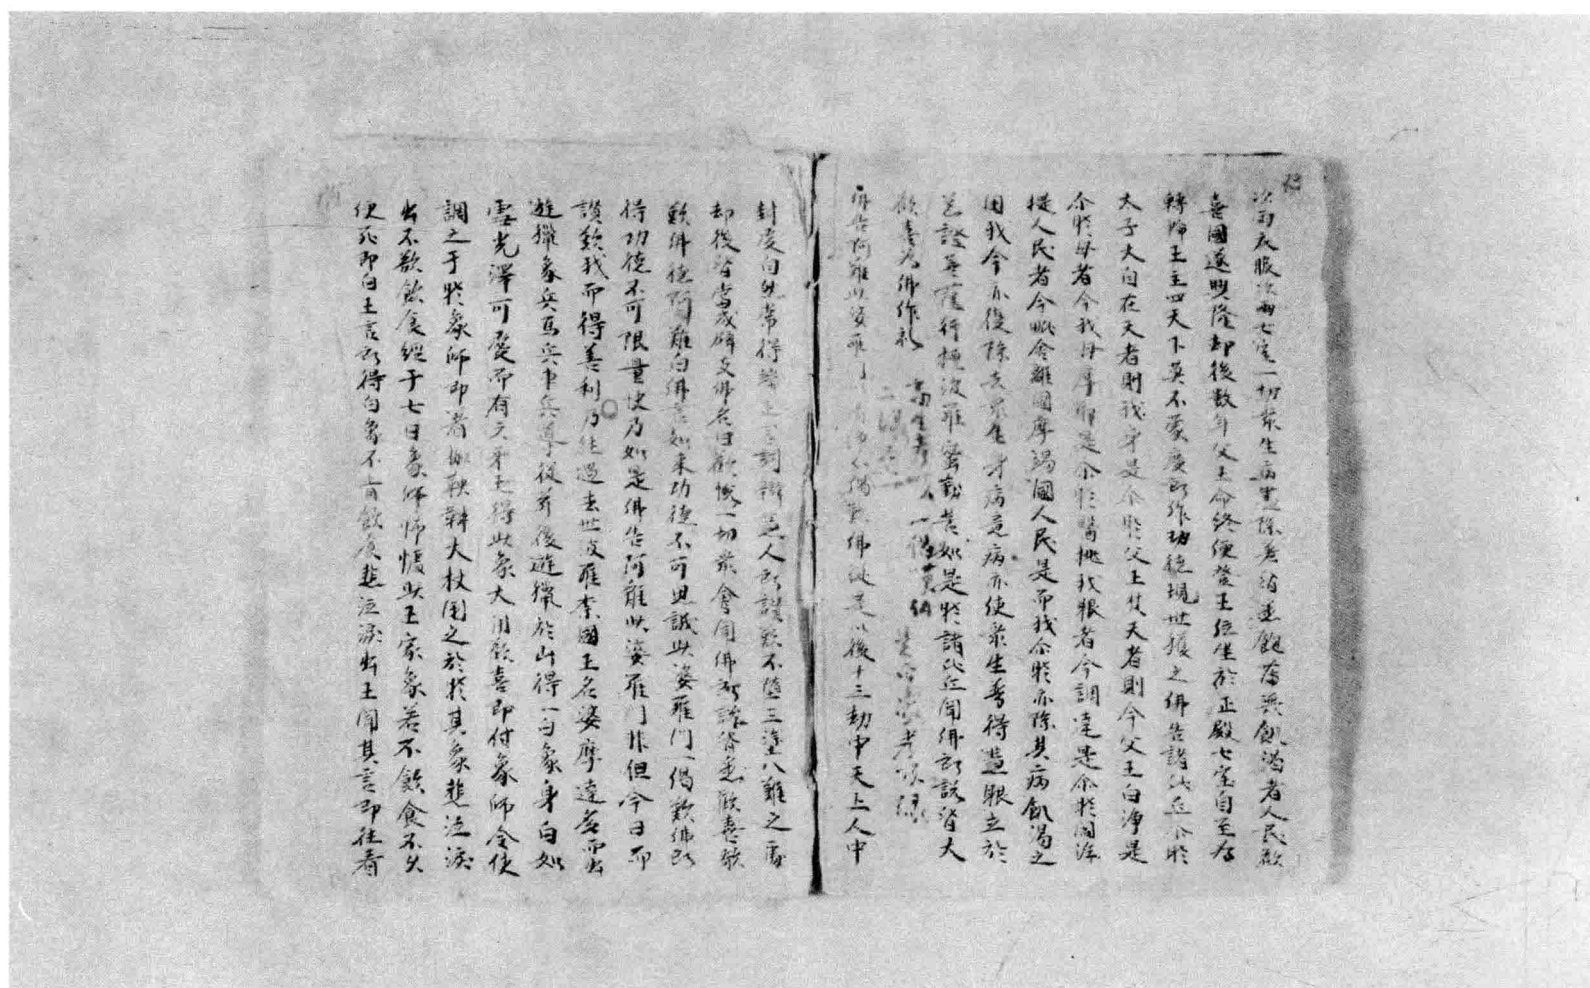 次雨衣服次雨七寶一切衆生病悉除
喜國遂興隆却後數年父王命終便登王位坐於正殿七宝自至為
轉侖王主四天下莫不蒙慶所作功德現世獲之佛告諸比丘尒時
太子大自在天者則我身是尒時父上仗天者則今父王白淨是
尒時母者今我母摩耶是尒時醫挑我眼者今調達是尒時閻浮
提人民者今毗舍離國摩竭國人民是而我尒時亦除其病飢渴之
困我今亦復除去衆生身病意病亦使衆生普得慧眼立於
行檀波羅蜜勤苦如是時諸比丘聞佛所說皆大
歡喜為佛作礼
佛告阿難此婆羅門 偈歎佛從是以後十三劫中天上人中
封受自然常得端正言詞辯慧人所讚歎不墮三塗八難之處
却後皆當成辟支佛名曰歡悅一切衆會聞佛所說皆悉歡喜敬
歎佛德阿難白佛言如来功德不可思議此婆羅門一偈歎佛所
得功德不可限量快乃如是佛告阿難此婆羅門非但今日而
讚歎我而得善利乃往過去世波羅柰國王名婆摩達多而出
遊獵象兵馬兵車兵導從前後遊獵於山得一白象身白如
雪光澤可愛而有六牙王得此象大用歡喜即付象師令使
調之于時象師即著 鞅靽大杖困之於時其象悲泣淚
出不欲飲食經于七日象師怖懅此王家象若不飲食不久
便死即白王言所得白象不肯飲食悲泣淚出王聞其言即往看